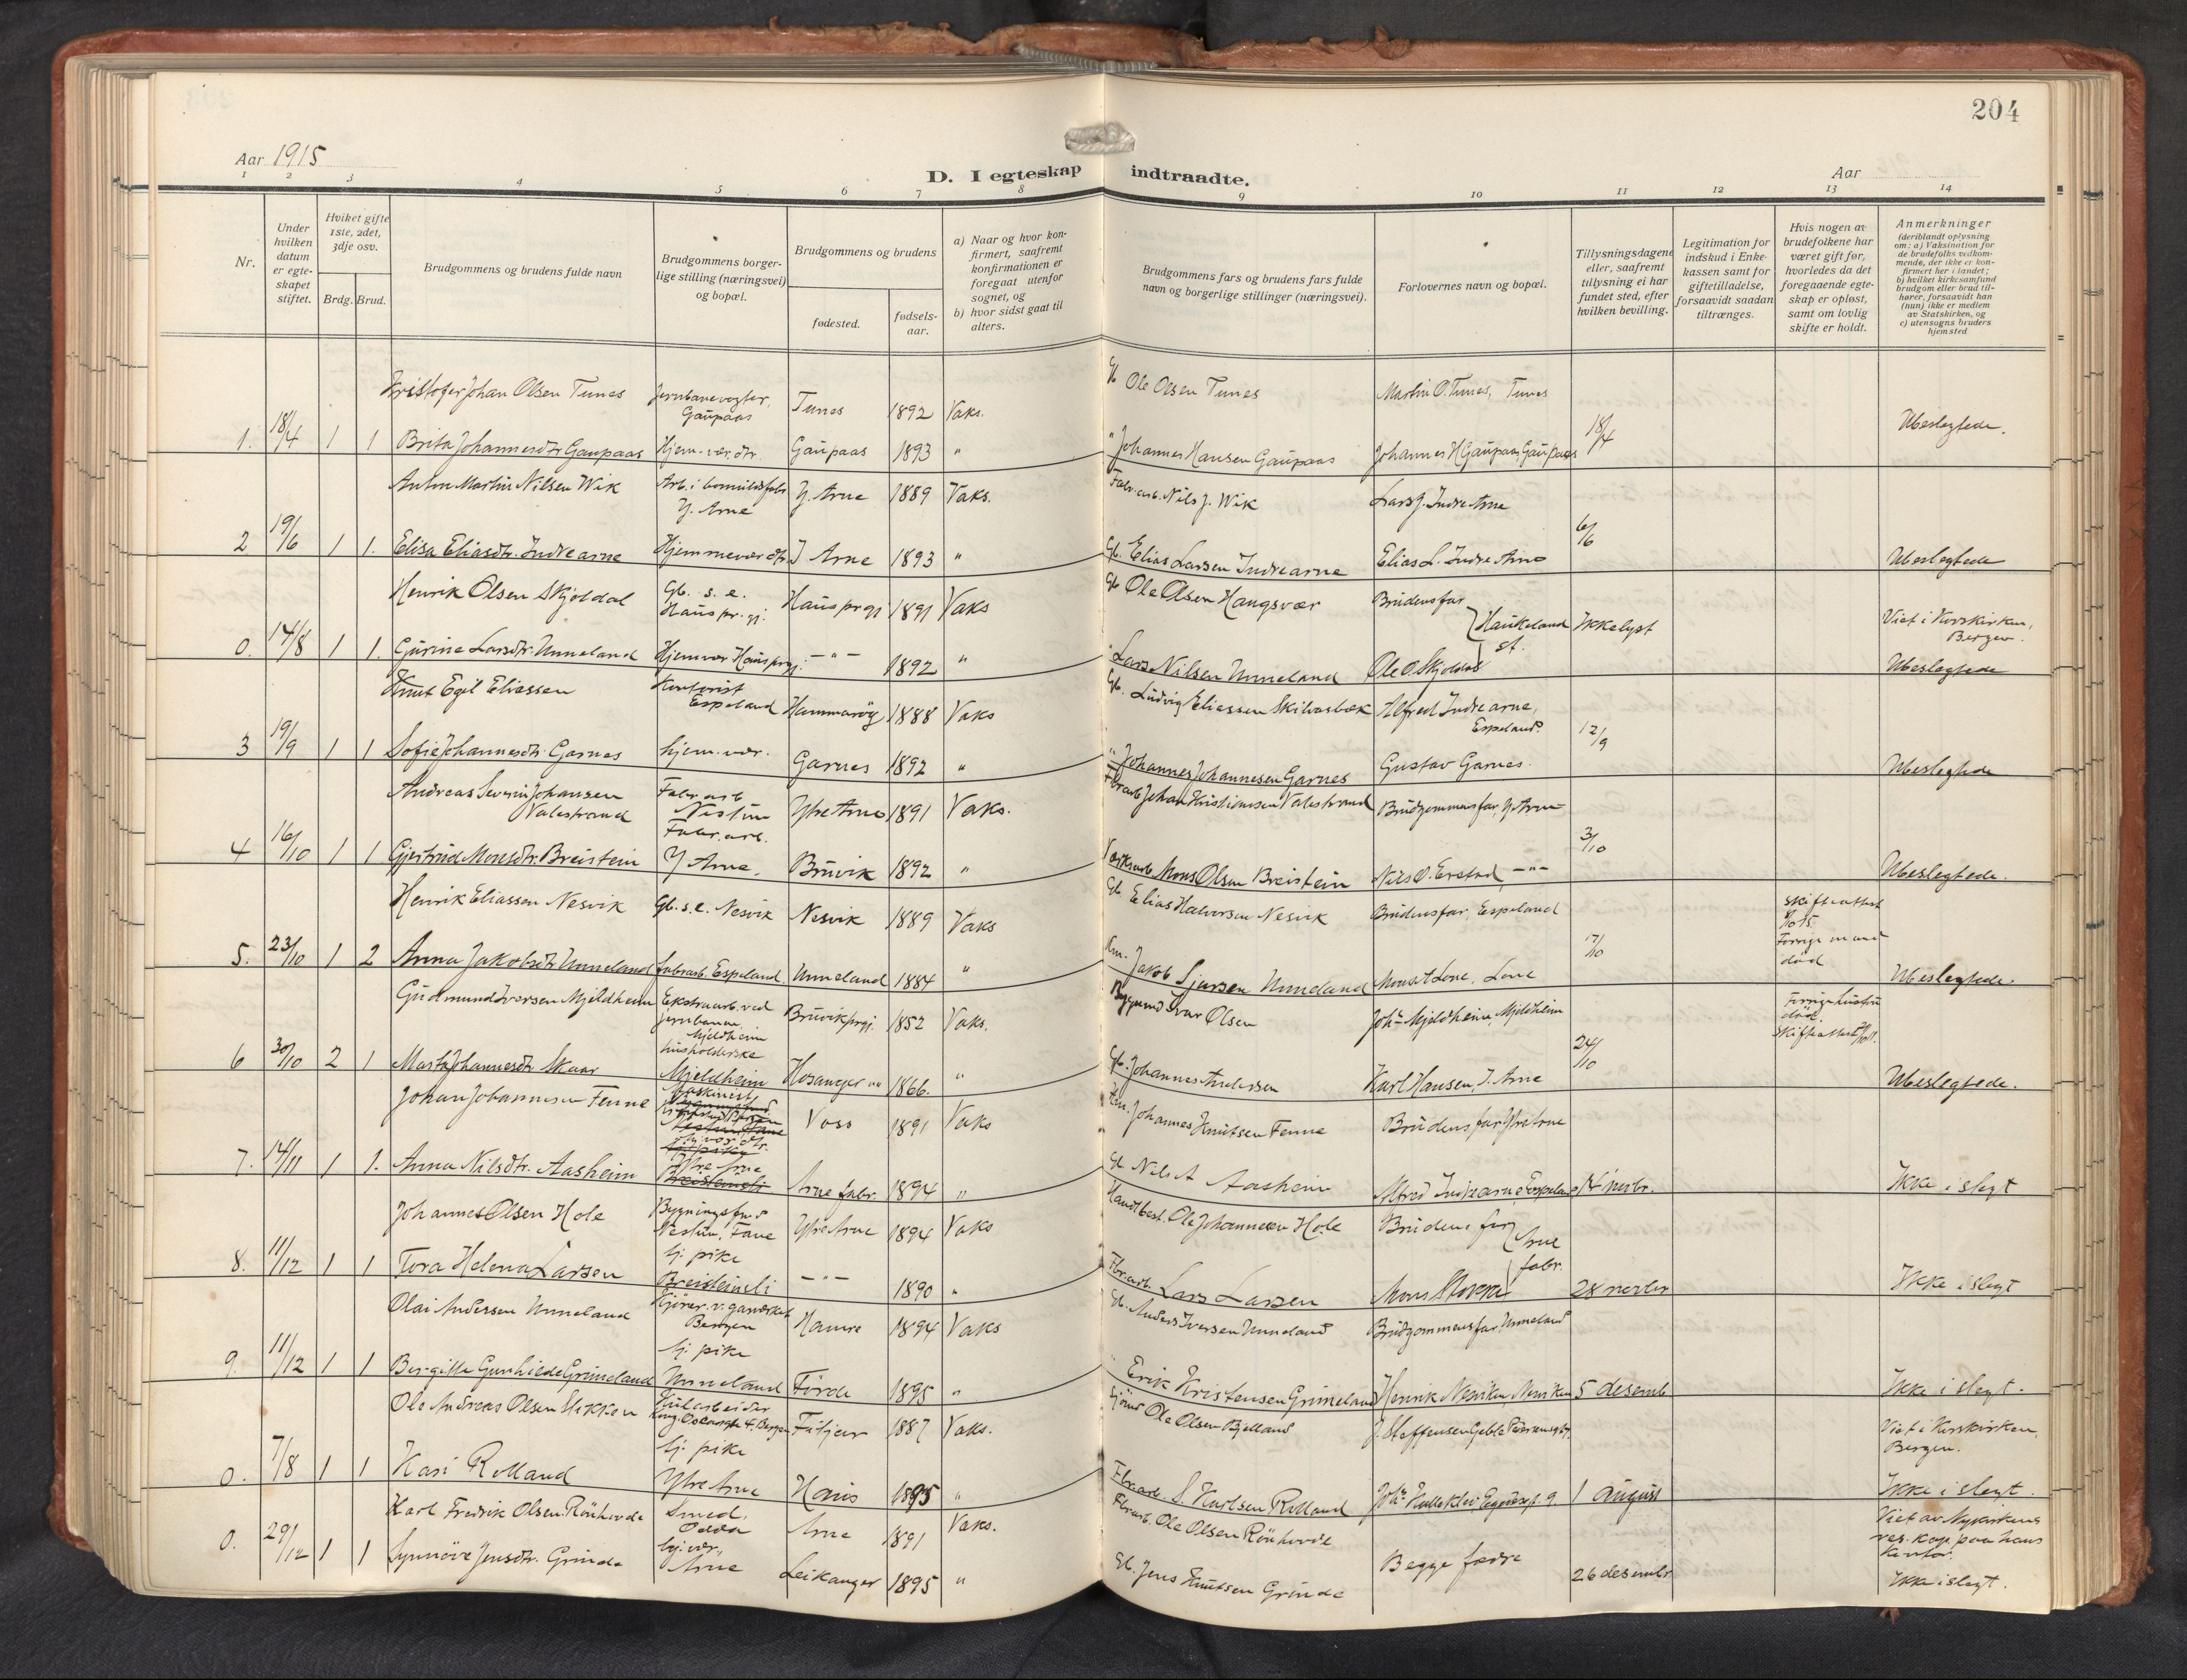 204
Aar 1915
D. I egteskap indtraadte.
Aar
1 2 3 4 5 6 7 8 9 10 11 12 13 14
Nr.
Under hvilken datum er egte-skapet stiftet.
Hviket gifte 1ste, 2det, 3dje osv.
Brdg. Brud.
Brudgommens og brudens fulde navn
Brudgommens borger-lige stilling (næringsvei) og bopæl.
Brudgommens og brudens
fødested.
fødsels-aar.
a) Naar og hvor kon-firmert, saafremt konfirmationen er foregaat utenfor sognet, og
b) hvor sidst gaat til alters.
Brudgommens fars og brudens fars fulde navn og borgerlige stillinger (næringsvei).
Forlovernes navn og bopæl.
Tillysningsdagene eller, saafremt tillysning ei har fundet sted, efter hvilken bevilling.
Legitimation for indskud i Enke-kassen samt for giftetilladelse, forsaavidt saadan tiltrænges.
Hvis nogen av brudefolkene har været gift før, hvorledes da det foregaaende egte-skap er opløst, samt om lovlig skifte er holdt.
Anmerkninger
(deriblandt oplysning om: a) Vaksination for de brudefolks vedkom-mende, der ikke er kon-firmert her i landet; b) hvilket kirkesamfund brudgom eller brud til-hører, forsaavidt han (hun) ikke er medlem av Statskirken, og c) utensogns bruders hjemsted
Kristofer Johan Olsen Tunes Jernbanevogter, Gaupaas Tunes 1892 Vaks. Gb Ole Olsen Tunes Martin O. Tunes, Tunes
1. 18/4 1 1 Brita Johannesdtr Gaupaas Hjem. vær. dtr. Gaupaas 1893 " " Johannes Hansen Gaupaas Johannes H Gaupaas Gaupaas 18/4 Ubeslegtede.
Anton Martin Nilsen Wik Arb. i bomuldsfabr Y. Arne Y. Arne 1889 Vaks. Fabr. arb. Nils J. Wik Lars J. Indre Arne
2 19/6 1 1. Elisa Eliasdtr. Indrearne Hjemmevær dtr. I Arne 1893 " Gb. Elias Larsen Indrearne Elias L. Indre Arne 6/6 Ubeslegtede
Henrik Olsen Skjoldal Gb. s. e. Haus pr. gj. Haus prgj 1891 Vaks Gb Ole Olsen Hangsvær Brudens far
0. 14/8 1 1. Gurine Larsdtr. Unneland Hjemvær Haus prgj. -"- 1892 " " Lars Nilsen Unneland Ole O. Skjoldal Haukeland st. Ikke lyst Viet i Korskirken, Bergen. Ubeslegtede
Knut Egil Eliassen Kontorist Espeland Hammarøy 1888 Vaks Gb. Ludvig Eliassen Skilvasbæk Alfred Indrearne, Espeland
3 19/9 1 1 Sofie Johannesdtr. Garnes hjem. vær. Garnes 1892 " " Johannes Johannesen Garnes Gustav Garnes. 12/9 Ubeslegtede
Andreas Severin Johansen Valestrand Fabr. arb Nestun Ytre Arne 1891 Vaks. Fbrarb Johan Kristiansen Valestrand Brudgommens far, Y. Arne
4 16/10 1 1 Gjertrud Monsdtr. Breistein Fabr. arb. Y Arne. Bruvik 1892 " Mons Olsen Breistein Nils O. Erstad, -"- 3/10 Ubeslegtede.
Henrik Eliassen Nesvik Gb. s. e. Nesvik Nesvik 1889 Vaks Gb Elias Halvorsen Nesvik Brudens far, Espeland
5. 23/10 1 2 Anna Jakobsdtr Unneland fabrarb. Espeland Unneland 1884 " Jakob Sjursen Unneland Mons L Lone, Lone 17/10 Skifteattest Forrige mand død Ubeslegtede.
Gudmund Iversen Mjeldheim Ekstraarb. ved jernbanen Mjeldheim Bruvik prgj. 1852 Vaks. Bygmand Ivar Olsen Johs Mjeldheim, Mjeldheim
6 30/10 2 1 Marta Johannesdtr Skaar husholderske Mjeldheim Hosanger "" 1866. " Gb. Johannes Andersen Karl Hansen, I. Arne 24/10 Forrige hustru død. Skifteattest Ubeslegtede.
Johan Johannesen Fenne Maskinist Voss 1891 Vaks Johannes Knutsen Fenne Brudens far Ytre Arne
7. 14/11 1 1. Anna Nilsdtr. Aasheim Ytre Arne Arne fabr. 1894 " Gb Nils A Aasheim Alfred Indrearne, Espeland 14 novbr. Ikke i slegt
Johannes Olsen Hole Bygningssnd Nestun, Fane Ytre Arne 1894 Vaks Handl. best. Ole Johannesen Hole Brudens far
8. 11/12 1 1 Tora Helena Larsen hj. pike Breisteinsli -"- 1890 " Fbr. arb. Lars Larsen Mons Arne fabr. 28 novbr Ikke i slegt
Olai Andersen Unneland Kjører v. gasverket Bergen Hamre 1894 Vaks Gb. Anders Iversen Unneland Brudgommens far, Unneland
9. 11/12 1 1 Bergitte Gunhilde Grimeland hj. pike Unneland Førde 1895 " " Erik Kristensen Grimeland Henrik Nesvik, Nesviken 5 desemb Ikke i slegt.
Ole Andreas Olsen Stikken Kularbeider Kong Oscarsgt. 4. Bergen Fitjar 1887 Vaks. Ole Olsen Bjelland J. Steffensen Geble Pedersensgt.
0. 7/8 1 1 Kari Rolland hj. pike Ytre Arne Haus 1895 " Fbr. arb. S. Karlsen Rolland 1 august Viet i Korskirken, Bergen. Ikke i slegt.
Karl Fredrik Olsen Rönhovde Smed. Odda Arne 1891 Vaks. Fbrarb. Ole Olsen Rönhovde
0. 29/12 1 1 Synnöve Jensdtr. Grinde hj. vær, Arne Leikanger 1895 " Gb. Jens Knutsen Grinde Begge fædre 26 desembr Viet av Nykirkens res. kap. paa hans kontor. Ikke i slegt.